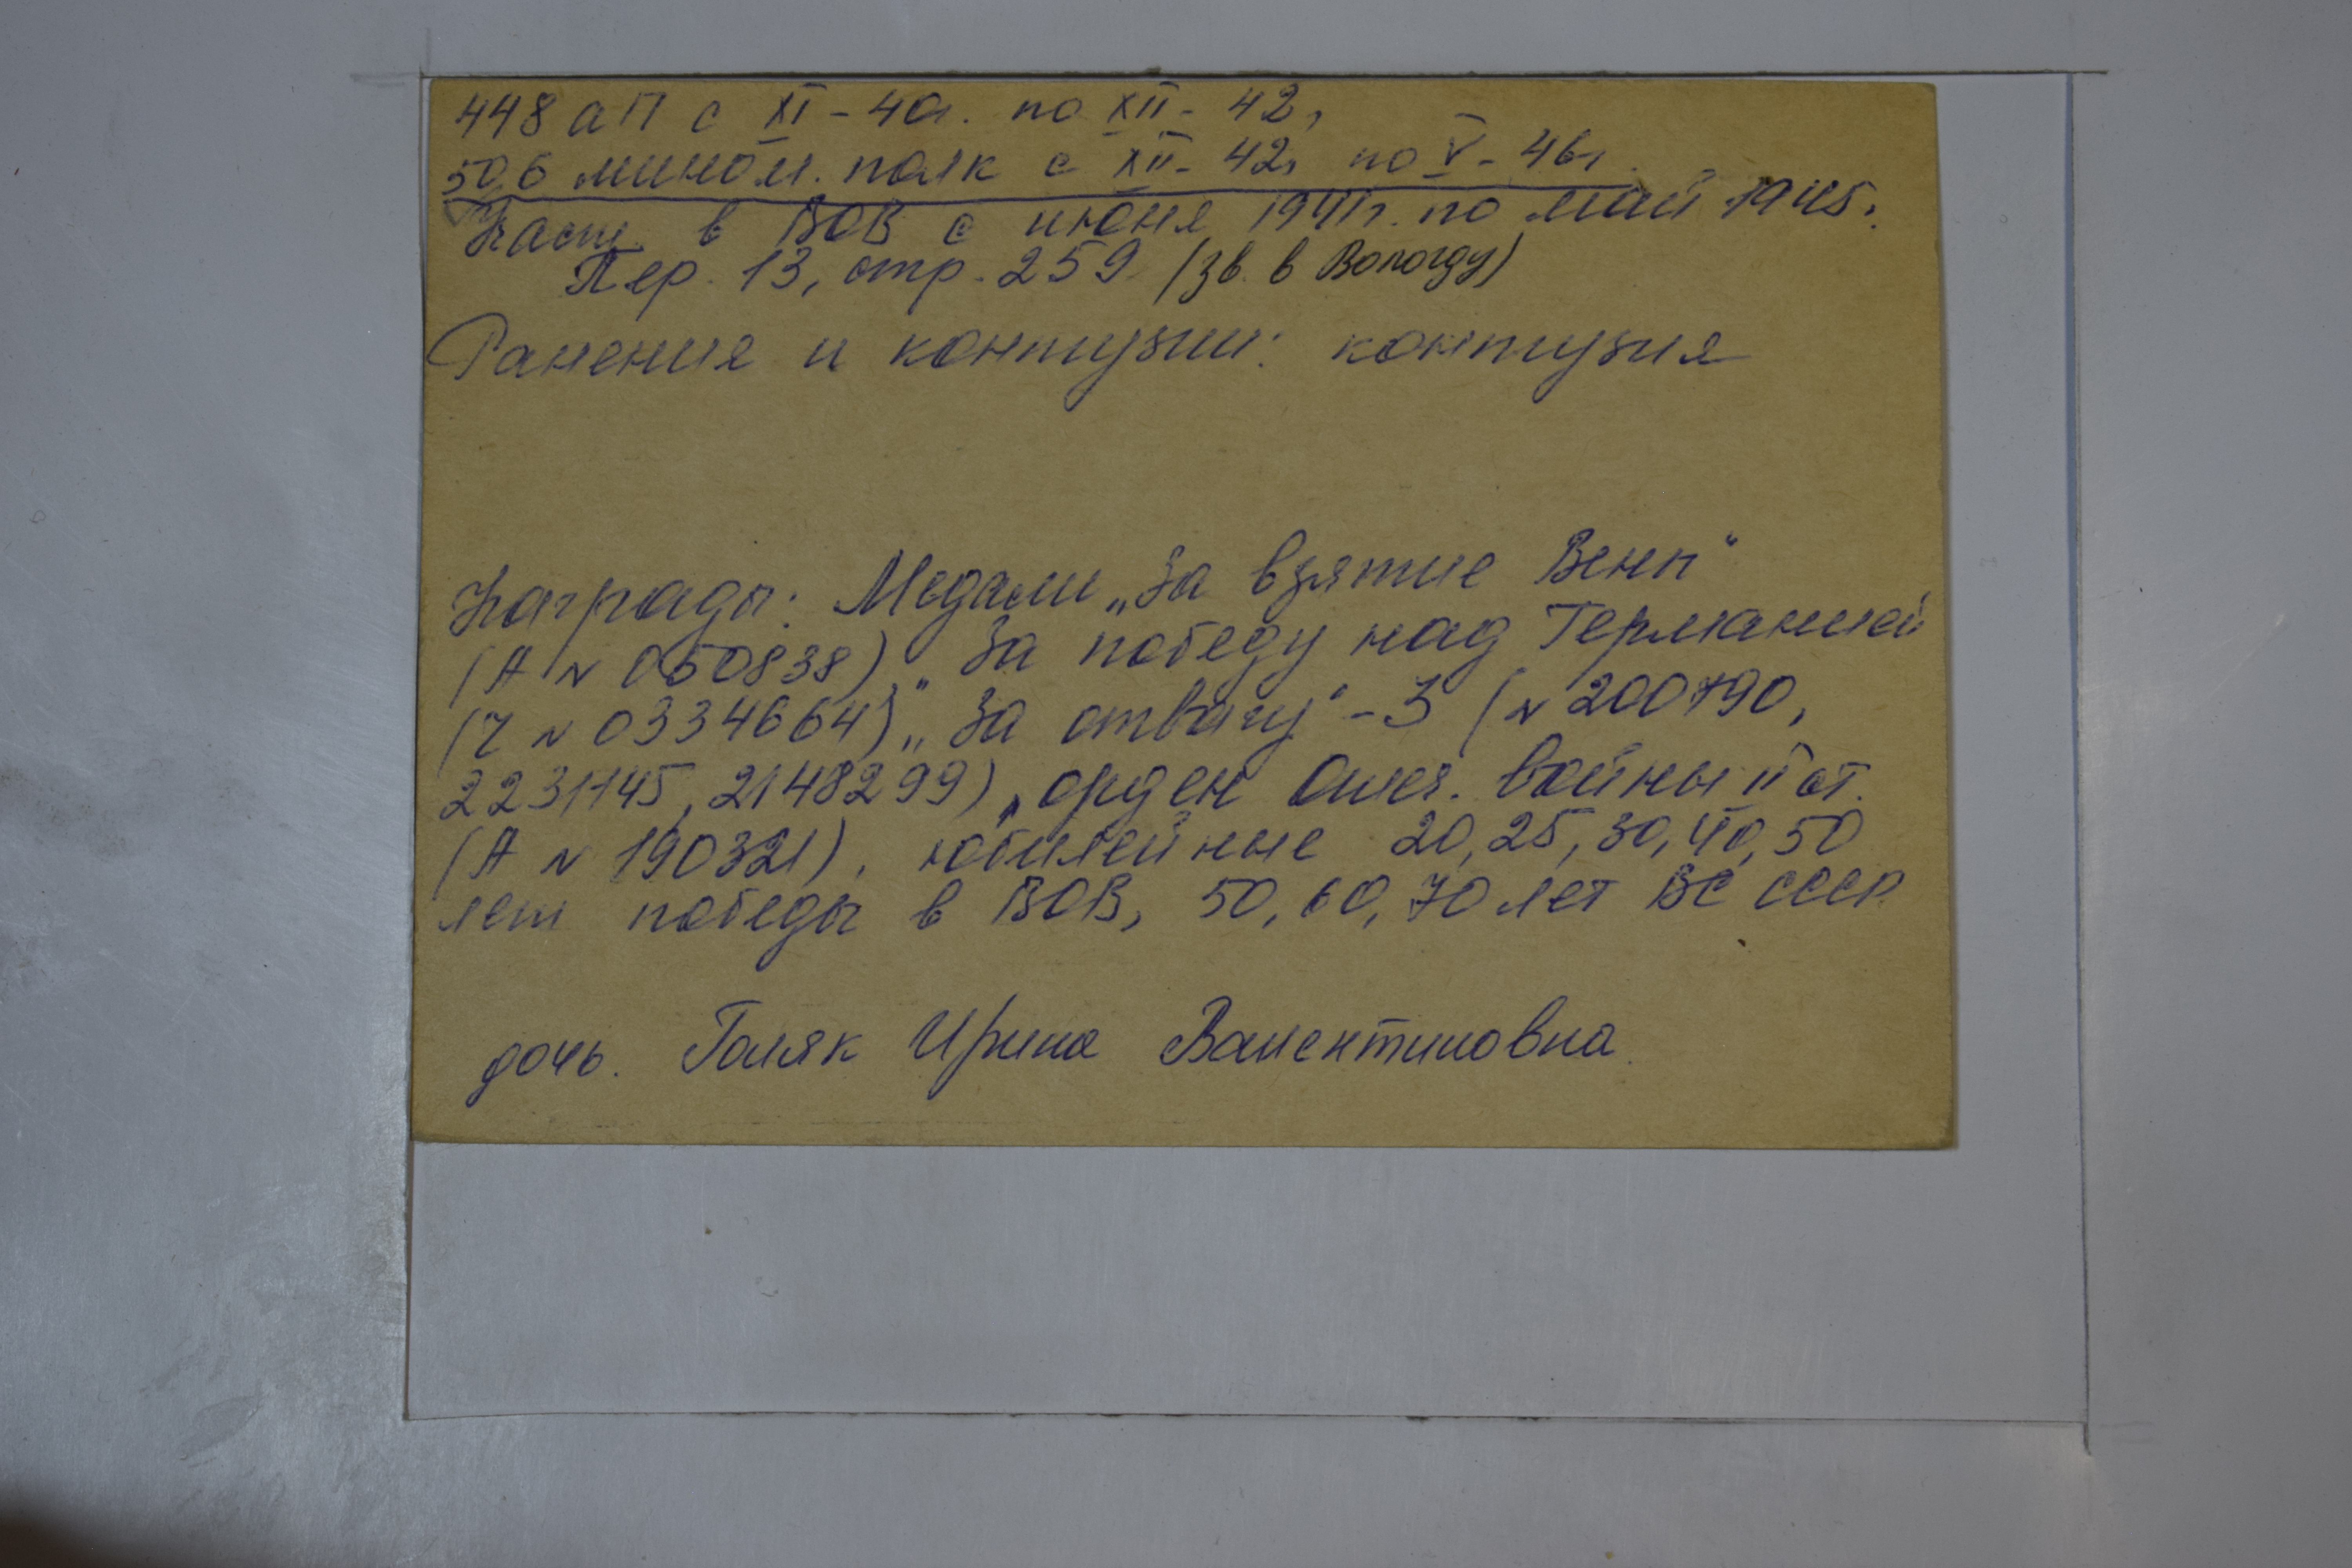 448 аП с XI - 40г. по XII - 42,
506 мином. полк с XII - 42г по V - 46г.
Част. в ВОВ с июня 1941г. по май 1945г.
Пер. 13, стр. 259 (зв. в Вологду)
Ранение и контузии: контузия
Награды: Медали „За взятие Вены"
(А N 050838), „За победу над Германией
(Ч N 0334664) „За отвагу" - 3 (N 200790,
2231145, 2148299), орден Отеч. войны II ст.
(А N 190321), юбилейные 20, 25, 30, 40, 50
лет победы в ВОВ, 50, 60, 70 лет ВС СССР
дочь. Голяк Ирина Валентиновна.